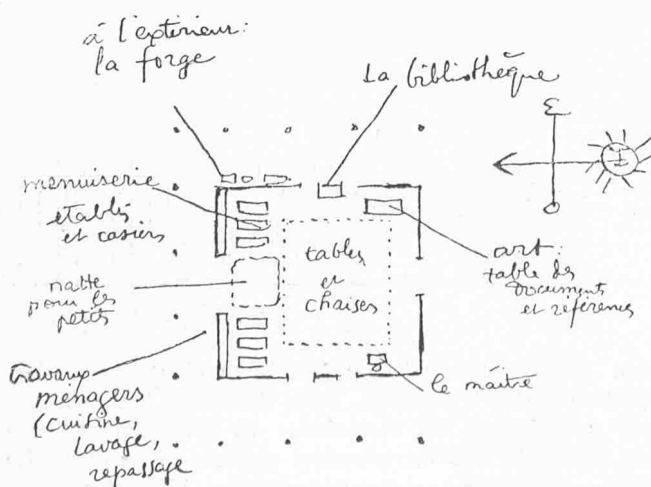 à l'extérieur:
la forge
La bibliothèque
E
menuiserie
établis
et casiers
tables
et
chaises
art:
table des
documents
et références
natte
pour les
petits
O
travaux
ménagers
(cuisine,
lavage,
repassage
le maître